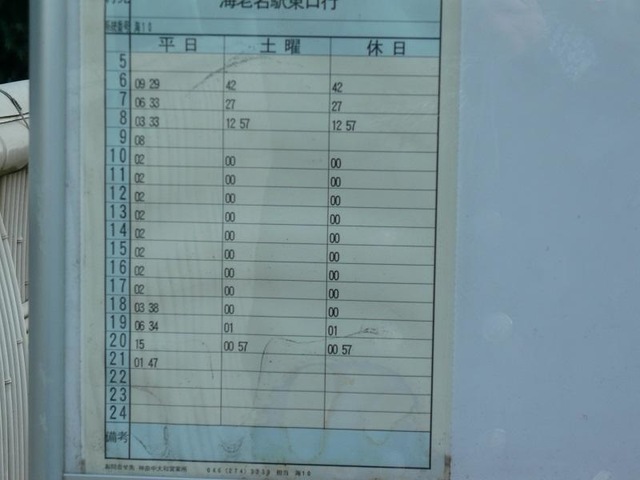 海老名駅東口行
系統番号 海10
平日 土曜 休日
5
6 09 29 42 42
7 06 33 27 27
8 03 33 12 57 12 57
9 08
10 02 00 00
11 02 00 00
12 02 00 00
13 02 00 00
14 02 00 00
15 02 00 00
16 02 00 00
17 02 00 00
18 03 38 00 00
19 06 34 01 01
20 15 00 57 00 57
21 01 47
22
23
24
備考
お問合せ先 神奈中大和営業所 担当 海10